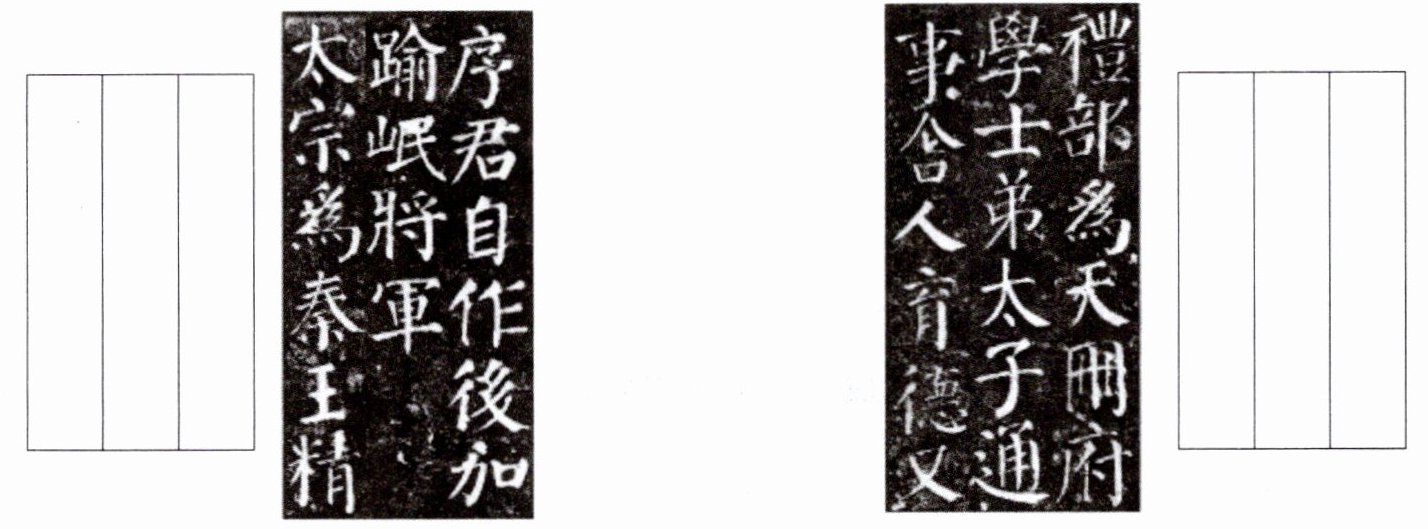 禮部爲天冊府
學士弟太子通
事舍人育德又
序君自作後加
踰岷將軍
太宗爲秦王精